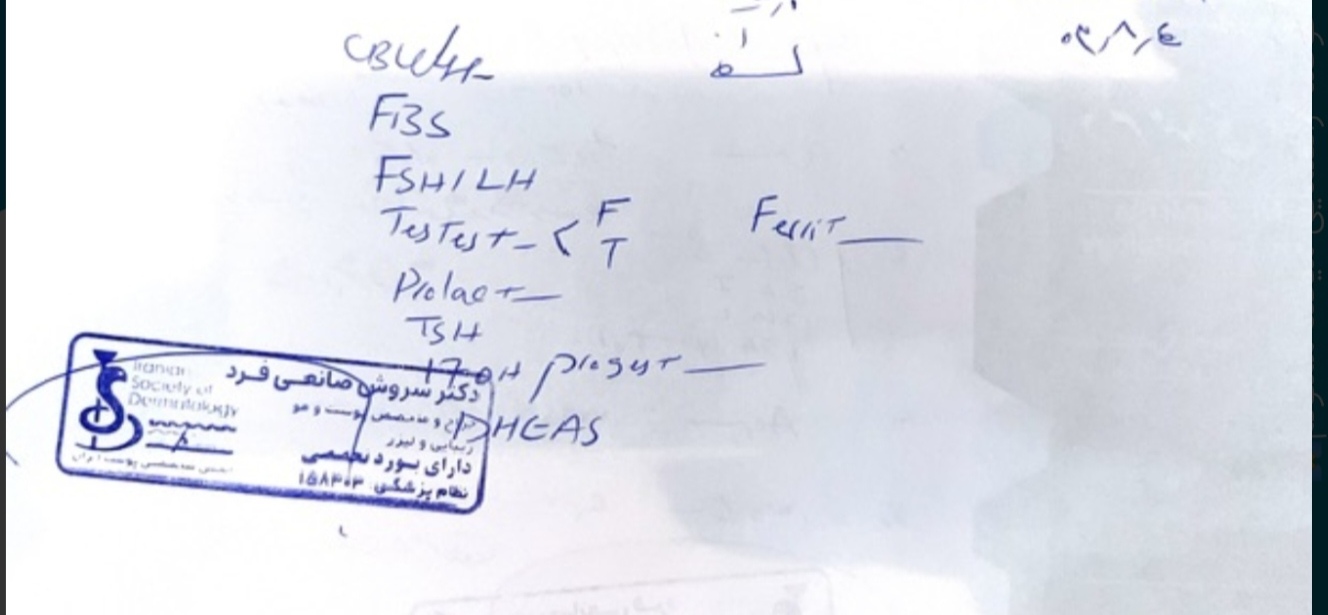 ۰۳,۸,۶
FBS
FSH/LH
TesTest- < F T
Ferrit
Prolact
TSH
17-OH progest
DHEAS
Iranian
Society of
Dermatology
دکتر سروش صانعی فرد
جراح و متخصص پوست و مو
زیبایی و لیزر
دارای بورد تخصصی
نظام پزشکی: ۱۵۸۳۰۳